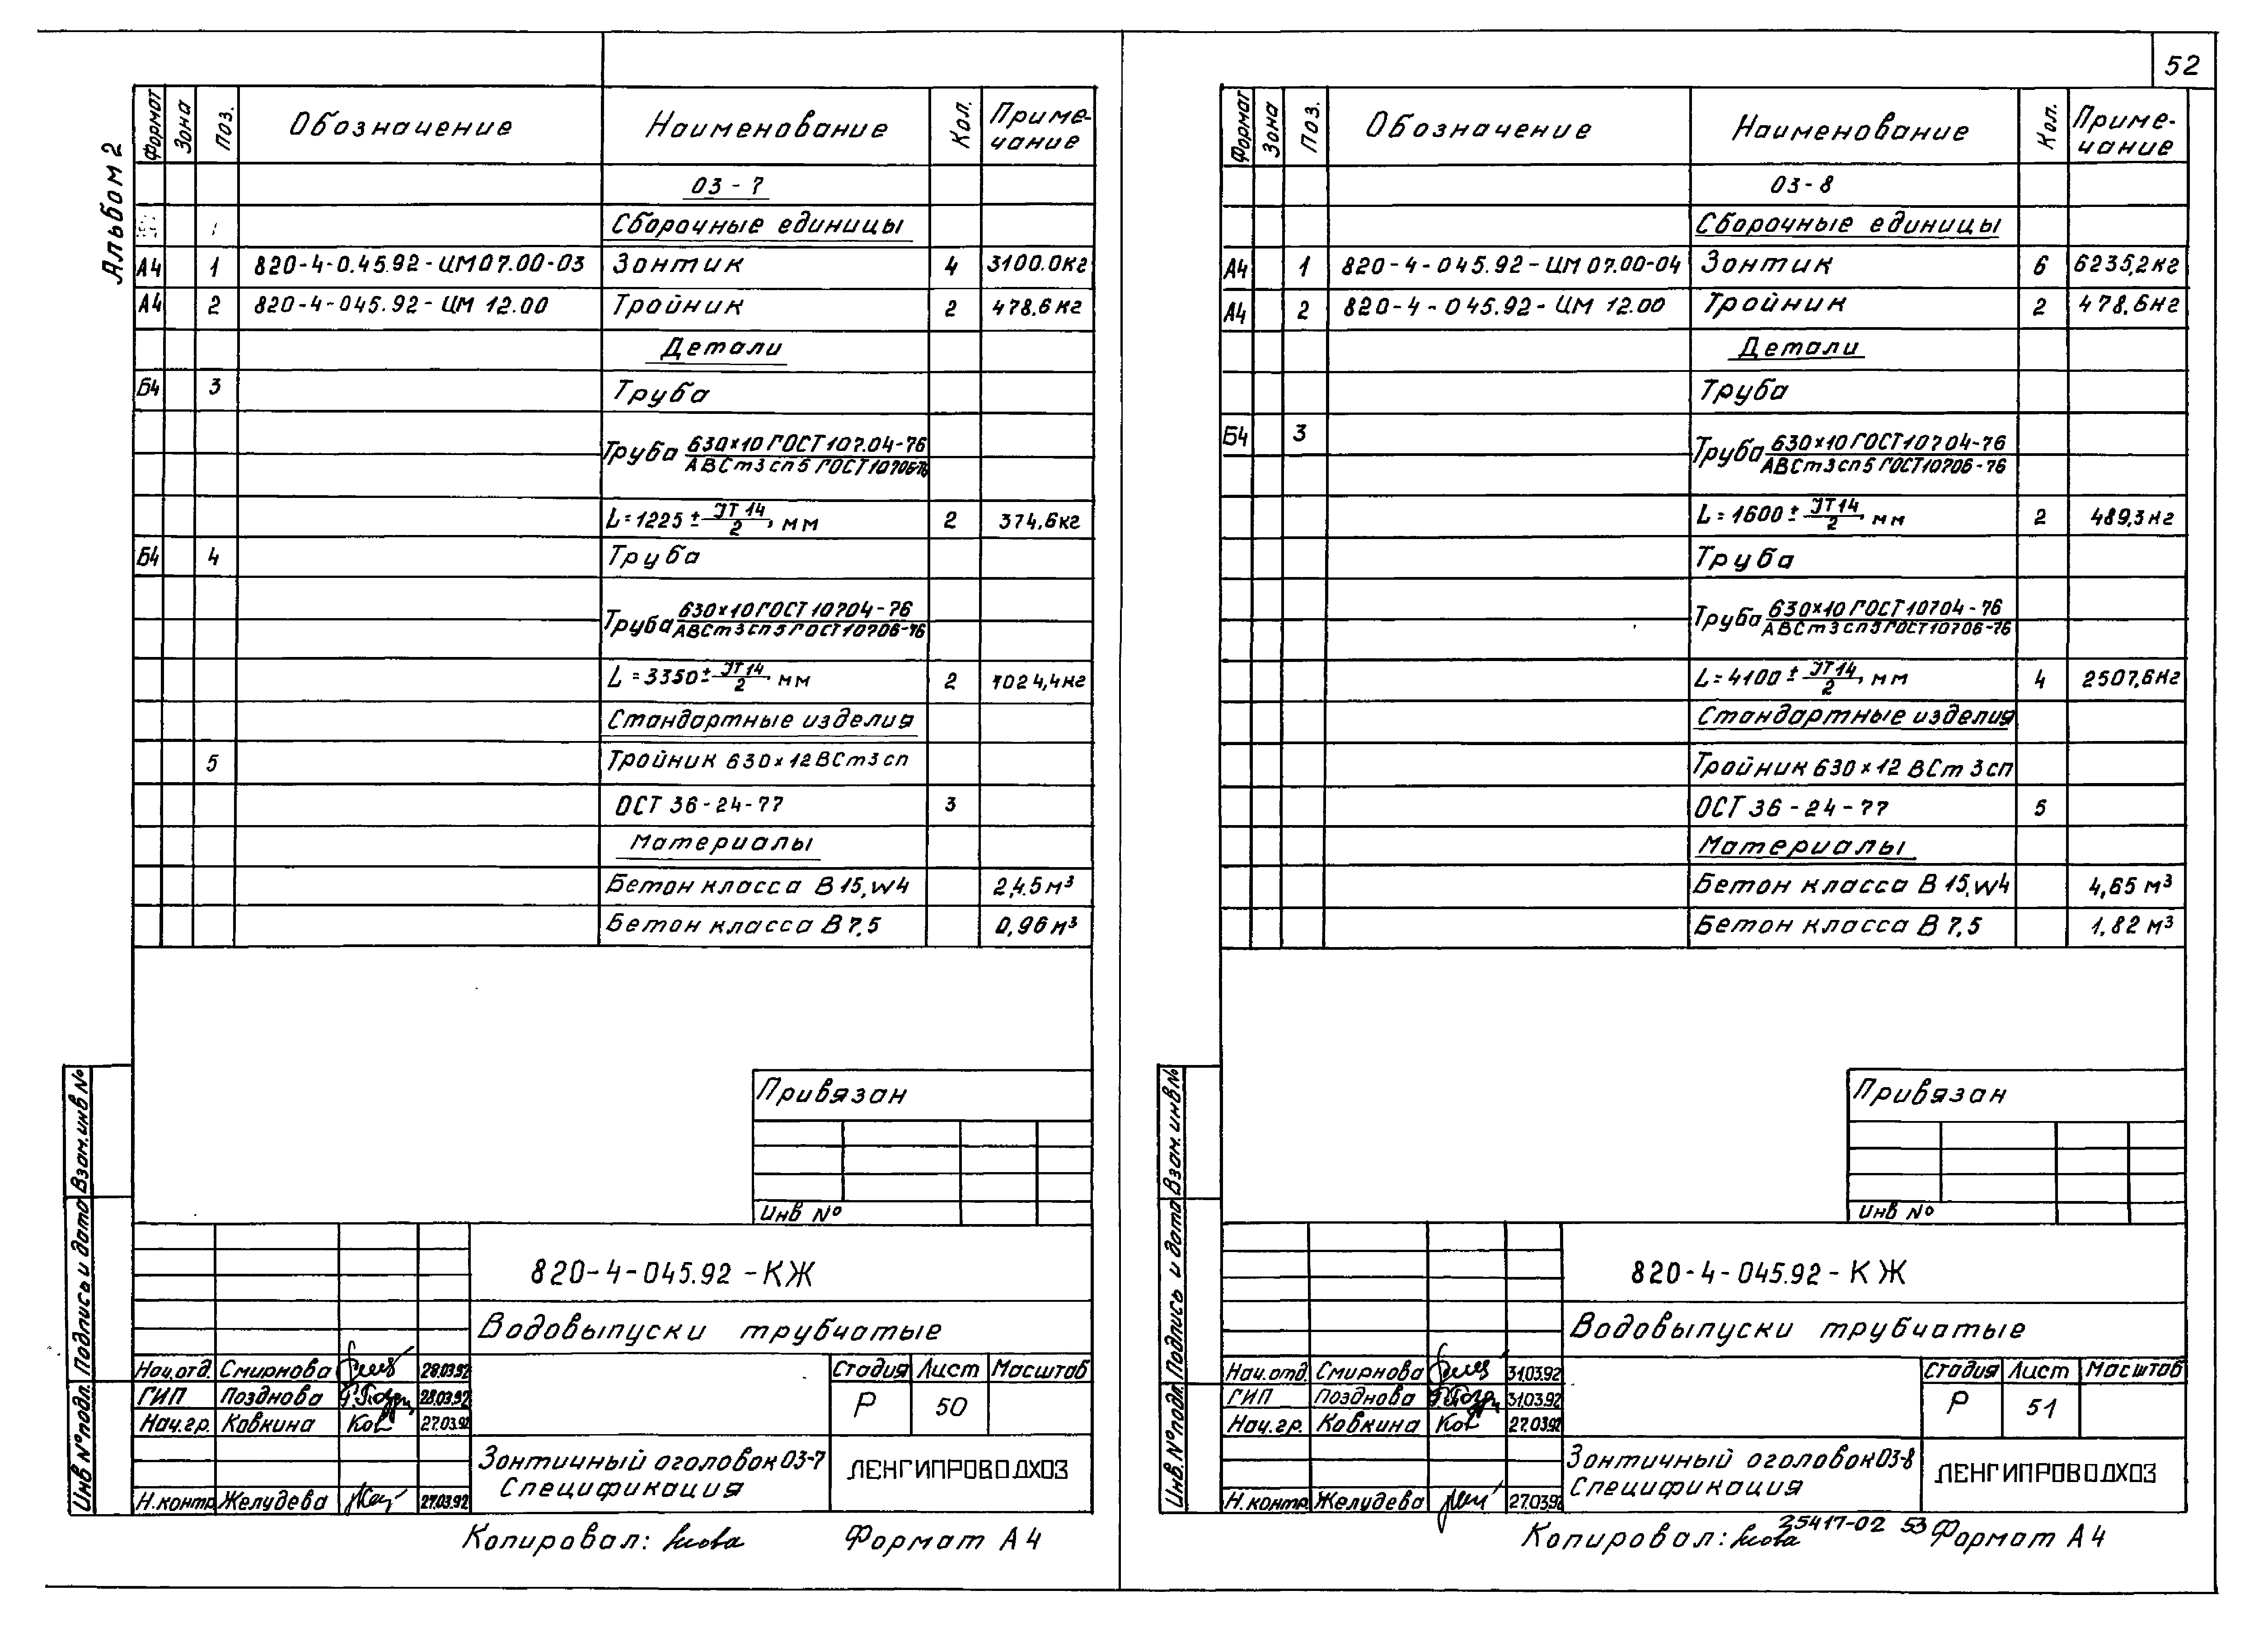 52
Альбом 2
Формат Зона Поз. Обозначение Наименование Кол. Приме-
чание
03-7
Сборочные единицы
А4 1 820-4-0.45.92-ЦМ07.00-03 Зонтик 4 3100.0кг
А4 2 820-4-045.92-ЦМ 12.00 Тройник 2 478.6кг
Детали
Б4 3 Труба
Труба 630×10 ГОСТ 107.04-76
АВСт3сп5 ГОСТ10706-76
L=1225 ± JT14/2, мм 2 374,6кг
Б4 4 Труба
Труба 630×10 ГОСТ 10704-76
АВСт3сп5 ГОСТ10706-76
L=3350 ± JT14/2, мм 2 1024,4кг
Стандартные изделия
5 Тройник 630×12 ВСт3сп
ОСТ 36-24-77 3
Материалы
Бетон класса В15, w4 2,45 м³
Бетон класса В7,5 0,96 м³
Привязан
Инв №
Взам.инв №
Подпись и дата
Инв №подл.
820-4-045.92-КЖ
Водовыпуски трубчатые
Нач.отд. Смирнова 28.03.92 Стадия Лист Масштаб
ГИП Позднова 28.03.92 Р 50
Нач.гр. Ковкина Ков 27.03.92
Зонтичный оголовок 03-7
Спецификация
ЛЕНГИПРОВОДХОЗ
Н.контр. Желудева 27.03.92
Копировал: Формат А4
Формат Зона Поз. Обозначение Наименование Кол. Приме-
чание
03-8
Сборочные единицы
А4 1 820-4-045.92-ЦМ 07.00-04 Зонтик 6 6235,2кг
А4 2 820-4-045.92-ЦМ 12.00 Тройник 2 478.6кг
Детали
Труба
Б4 3 Труба 630×10 ГОСТ10704-76
АВСт3сп5 ГОСТ10706-76
L=1600 ± JT14/2, мм 2 489,3кг
Труба
Труба 630×10 ГОСТ 10704-76
АВСт3сп5 ГОСТ10706-76
L=4100 ± JT14/2, мм 4 2507,6кг
Стандартные изделия
Тройник 630×12 ВСт3сп
ОСТ 36-24-77 5
Материалы
Бетон класса В15, w4 4,65 м³
Бетон класса В7,5 1,82 м³
Привязан
Инв №
Взам.инв №
Подпись и дата
Инв.№подл.
820-4-045.92-КЖ
Водовыпуски трубчатые
Нач.отд. Смирнова 31.03.92 Стадия Лист Масштаб
ГИП Позднова 31.03.92 Р 51
Нач.гр. Ковкина Ков 27.03.92
Зонтичный оголовок 03-8
Спецификация
ЛЕНГИПРОВОДХОЗ
Н.контр. Желудева 27.03.92
25417-02 53
Копировал: Формат А4